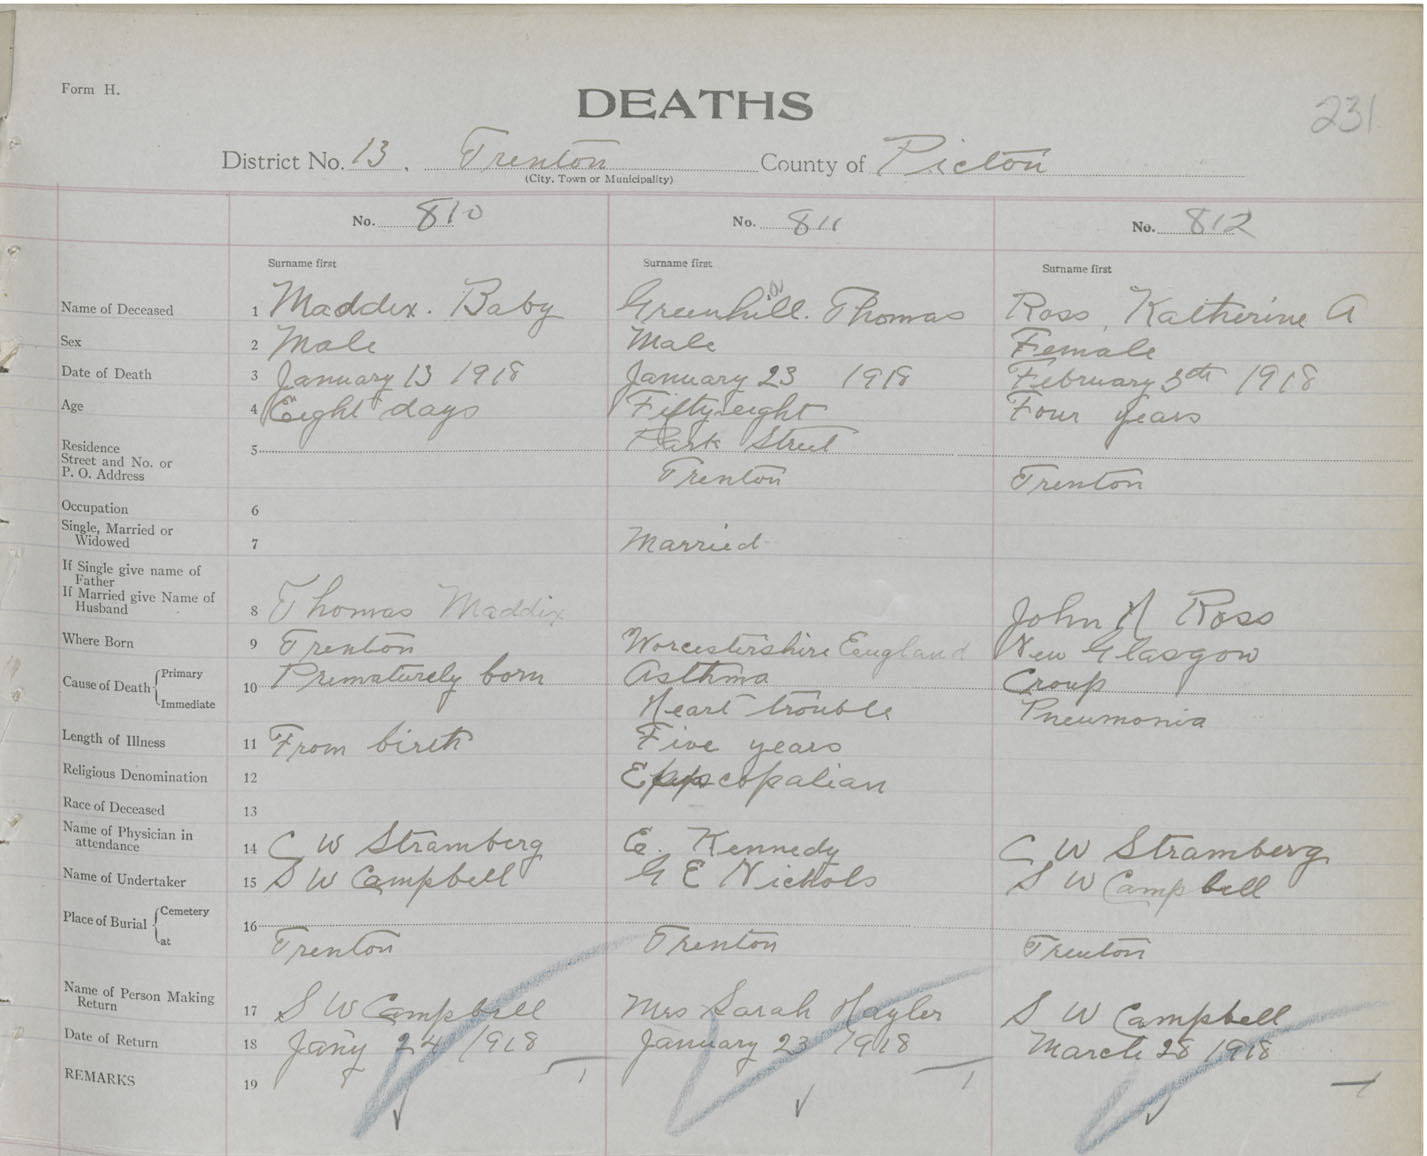 Form H.
DEATHS
231
District No. 13. Trenton County of Pictou
(City, Town or Municipality)
No. 810 No. 811 No. 812
Surname first Surname first Surname first
Name of Deceased 1 Maddix. Baby Greenhill. Thomas Ross, Katherine A
Sex 2 Male Male Female
Date of Death 3 January 13 1918 January 23 1918 February 5th 1918
Age 4 Eight days Fifty eight Four years
Residence 5 Park Street
Street and No. or
P. O. Address Trenton Trenton
Occupation 6
Single, Married or
Widowed 7 Married
If Single give name of
Father
If Married give Name of
Husband 8 Thomas Maddix John H Ross
Where Born 9 Trenton Worcestershire England New Glasgow
Cause of Death Primary 10 Prematurely born Asthma Croup
Immediate Heart trouble Pneumonia
Length of Illness 11 From birth Five years
Religious Denomination 12 Episcopalian
Race of Deceased 13
Name of Physician in
attendance 14 C W Stramberg E. Kennedy C W Stramberg
Name of Undertaker 15 S W Campbell G E Nichols S W Campbell
Place of Burial Cemetery 16
at Trenton Trenton Trenton
Name of Person Making
Return 17 S W Campbell Mrs Sarah Hayler S W Campbell
Date of Return 18 Jany 24 1918 January 23 1918 March 28 1918
REMARKS 19